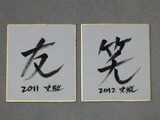 友
2011
笑
2012